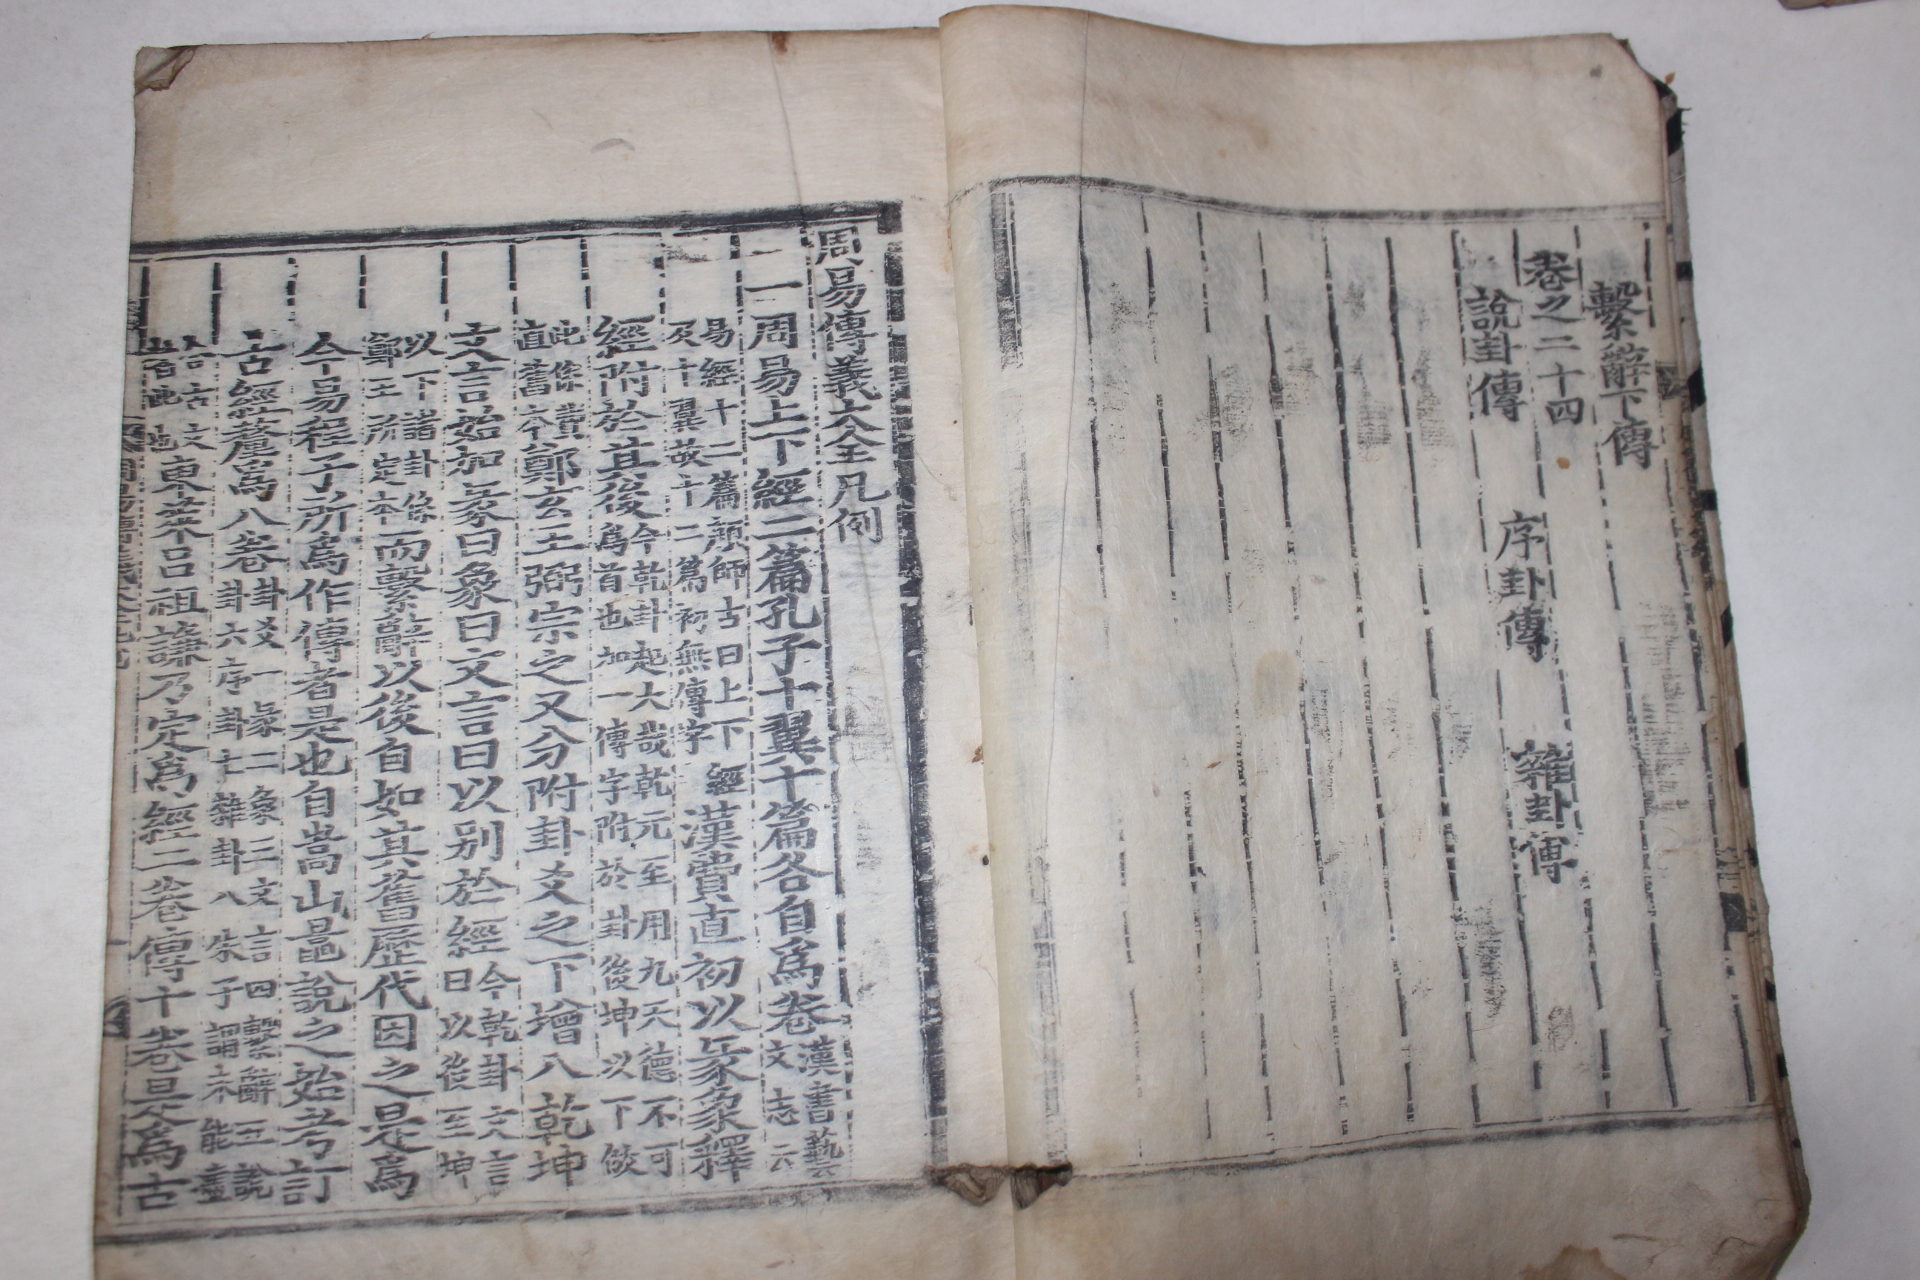 繫辭下傳
卷之二十四
說卦傳 序卦傳 雜卦傳
周易傳義大全凡例
一周易上下經二篇孔子十翼十篇各自爲卷漢書藝文志云
易經十二篇顏師古曰上下經及十翼故十二篇初無傳字漢費直初以彖象釋
經附於其後今乾卦起大哉乾元至用九天德不可爲首也加一傳字附於卦後坤以下倣
此係費直舊本鄭玄王弼宗之又分附卦爻之下增入乾坤
文言始加彖曰象曰文言曰以別於經今乾卦文言曰以後至坤
以下諸卦係鄭王所定本而繫辭以後自如其舊歷代因之是爲
今易程子所爲作傳者是也自嵩山晁說之始考訂
古經釐爲八卷卦爻一彖二象三文言四繫辭五說卦六序卦七雜卦八朱子謂未能盡
古文東萊呂祖謙乃定爲經二卷傳十卷是爲古